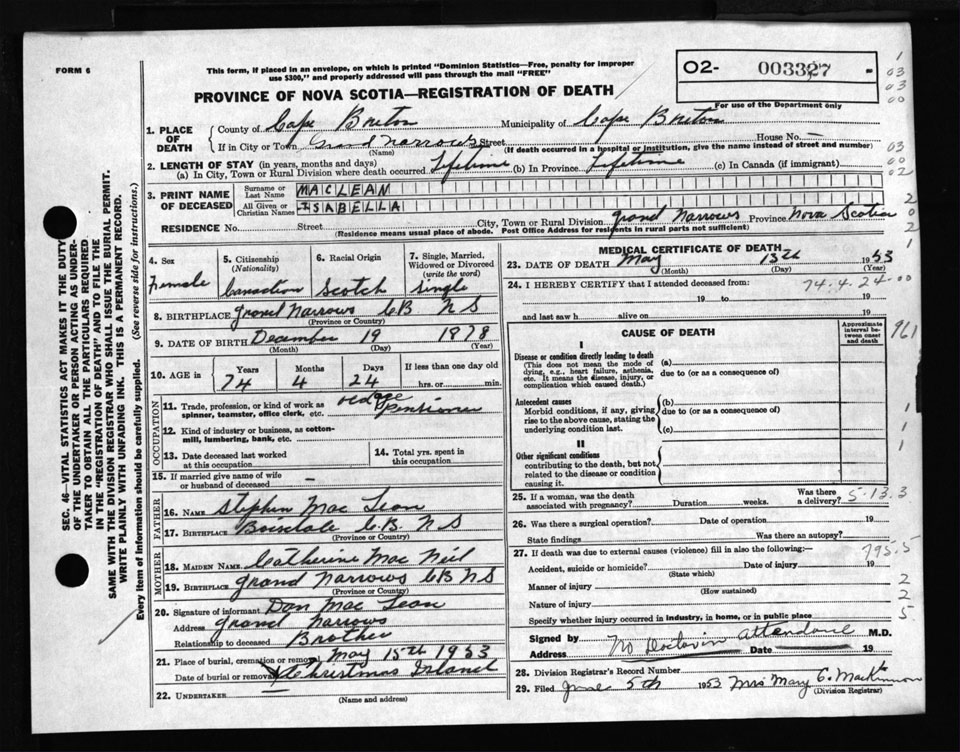 FORM 6
This form, if placed in an envelope, on which is printed "Dominion Statistics—Free, penalty for improper
use $300," and properly addressed will pass through the mail "FREE"
PROVINCE OF NOVA SCOTIA—REGISTRATION OF DEATH
02- 003327
For use of the Department only
1
03
03
00
03
00
02
2
0
2
1
1. PLACE OF DEATH
County of Cape Breton Municipality of Cape Breton
If in City or Town Grand Narrows Street House No. —
(Name) (If death occurred in a hospital or institution, give the name instead of street and number)
2. LENGTH OF STAY (in years, months and days)
(a) In City, Town or Rural Division where death occurred Lifetime (b) In Province Lifetime (c) In Canada (if immigrant)
3. PRINT NAME OF DECEASED
Surname or Last Name MACLEAN
All Given or Christian Names ISABELLA
RESIDENCE No. Street City, Town or Rural Division Grand Narrows Province Nova Scotia
(Residence means usual place of abode. Post Office Address for residents in rural parts not sufficient)
4. Sex
Female
5. Citizenship
(Nationality)
Canadian
6. Racial Origin
Scotch
7. Single, Married,
Widowed or Divorced
(write the word)
Single
8. BIRTHPLACE Grand Narrows CB NS
(Province or Country)
9. DATE OF BIRTH December 19 1878
(Month) (Day) (Year)
10. AGE in
Years Months Days If less than one day old
74 4 24 hrs. or min.
OCCUPATION
11. Trade, profession, or kind of work as
spinner, teamster, office clerk, etc. old age Pensioner
12. Kind of industry or business, as cotton-
mill, lumbering, bank, etc.
13. Date deceased last worked
at this occupation
14. Total yrs. spent in
this occupation
15. If married give name of wife
or husband of deceased —
FATHER
16. NAME Stephen Mac Lean
17. BIRTHPLACE Boisdale C.B. NS
(Province or Country)
MOTHER
18. MAIDEN NAME Catherine Mac Neil
19. BIRTHPLACE Grand Narrows CB NS
(Province or Country)
20. Signature of informant Dan Mac Lean
Address Grand Narrows
Relationship to deceased Brother
21. Place of burial, cremation or removal May 15th 1953
Date of burial or removal Christmas Island
22. UNDERTAKER
(Name and Address)
MEDICAL CERTIFICATE OF DEATH
23. DATE OF DEATH May 13th 1953
(Month) (Day) (Year)
24. I HEREBY CERTIFY that I attended deceased from:
74.4.24-00
19 to 19
and last saw h alive on 19
CAUSE OF DEATH
Approximate
interval be-
tween onset
and death
961
I
Disease or condition directly leading to death
(This does not mean the mode of
dying, e.g., heart failure, asthenia,
etc. It means the disease, injury, or
complication which caused death.)
(a)
due to (or as a consequence of)
Antecedent causes
Morbid conditions, if any, giving
rise to the above cause, stating the
underlying condition last.
(b)
due to (or as a consequence of)
(c)
1
1
1
II
Other significant conditions
contributing to the death, but not
related to the disease or condition
causing it.
25. If a woman, was the death
associated with pregnancy? Duration weeks. Was there
a delivery?
5-13.3
26. Was there a surgical operation? Date of operation 19
State findings Was there an autopsy?
27. If death was due to external causes (violence) fill in also the following:—
795.5
Accident, suicide or homicide? Date of injury 19
(State which)
Manner of injury
(How sustained)
2
Nature of injury
2
Specify whether injury occurred in industry, in home, or in public place
5
Signed by No Doctor in attendance M.D.
Address Date 19
28. Division Registrar's Record Number
29. Filed June 5th 1953 Mrs Mary C. MacKinnon
(Division Registrar)
SEC. 46—VITAL STATISTICS ACT MAKES IT THE DUTY
OF THE UNDERTAKER OR PERSON ACTING AS UNDER-
TAKER TO OBTAIN ALL THE PARTICULARS REQUIRED
IN THE "REGISTRATION OF DEATH" AND TO FILE THE
SAME WITH THE DIVISION REGISTRAR WHO SHALL ISSUE THE BURIAL PERMIT.
WRITE PLAINLY WITH UNFADING INK. THIS IS A PERMANENT RECORD.
Every item of information should be carefully supplied. (See reverse side for instructions.)